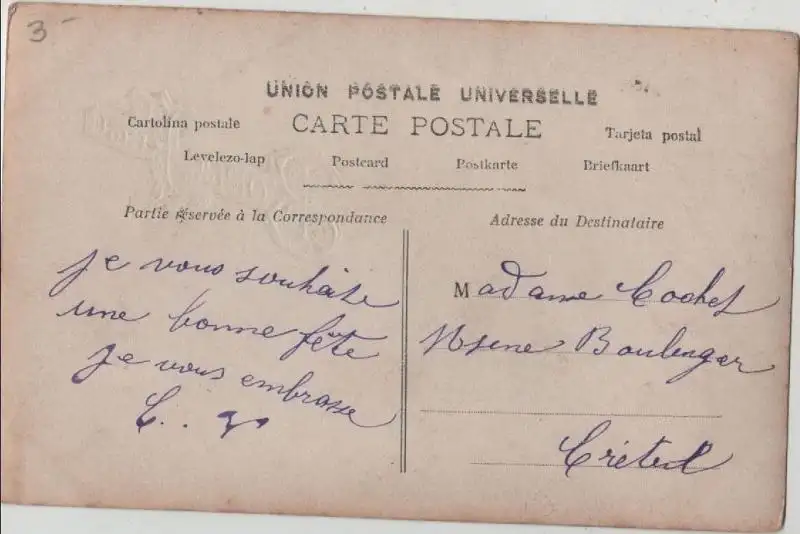 3-
UNION POSTALE UNIVERSELLE
CARTE POSTALE
Cartolina postale
Tarjeta postal
Levelezo-lap Postcard Postkarte Briefkaart
Partie réservée à la Correspondance
je vous souhaite
une bonne fête
je vous embrasse
Adresse du Destinataire
Madame Cochet
Usine Boulenger
Créteil